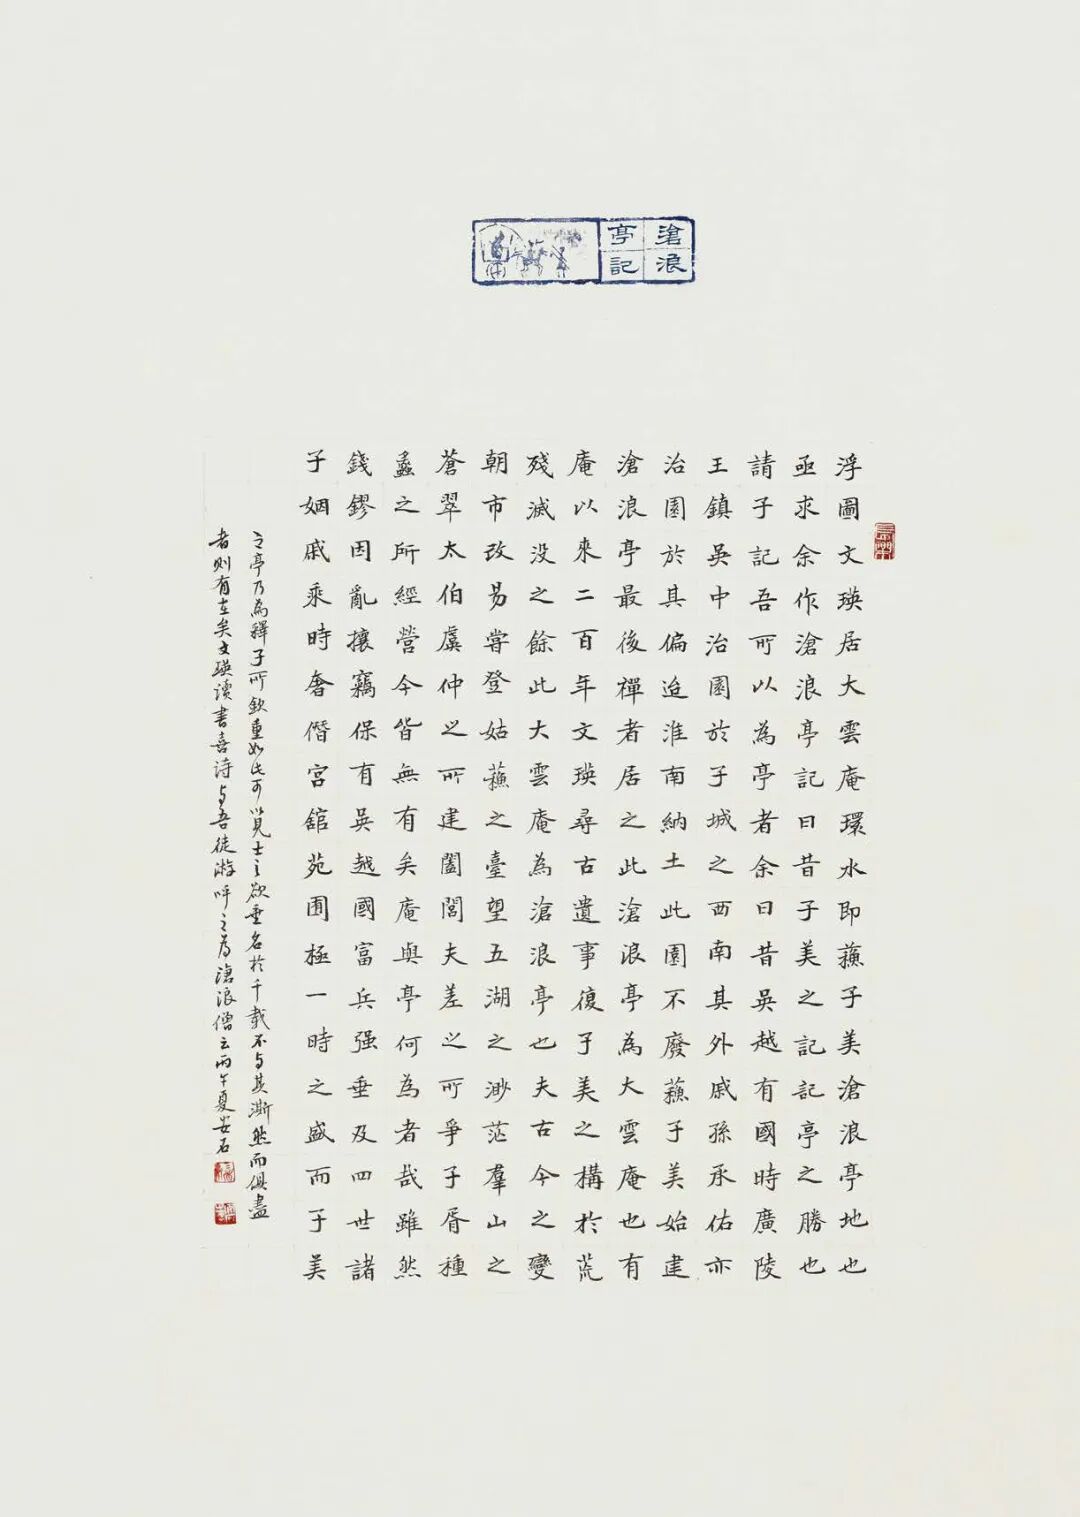 滄浪
亭記
浮圖文瑛居大雲庵環水即蘓子美滄浪亭地也
亟求余作滄浪亭記曰昔子美之記記亭之勝也
請子記吾所以為亭者余曰昔吳越有國時廣陵
王鎮吳中治園於子城之西南其外戚孫承佑亦
治園於其偏迨淮南納土此園不廢蘓子美始建
滄浪亭最後禪者居之此滄浪亭為大雲庵也有
庵以來二百年文瑛尋古遺事復子美之構於荒
殘滅没之餘此大雲庵為滄浪亭也夫古今之變
朝市改易嘗登姑蘓之臺望五湖之渺茫羣山之
蒼翠太伯虞仲之所建闔閭夫差之所爭子胥種
蠡之所經營今皆無有矣庵與亭何為者哉雖然
錢鏐因亂攘竊保有吳越國富兵强垂及四世諸
子姻戚乘時奢僭宮館苑囿極一時之盛而子美
之亭乃為釋子所欽重如此可以見士之欲垂名於千載不与其澌然而俱盡
者則有在矣文瑛讀書喜詩与吾徒游呼之為滄浪僧云丙午夏安石